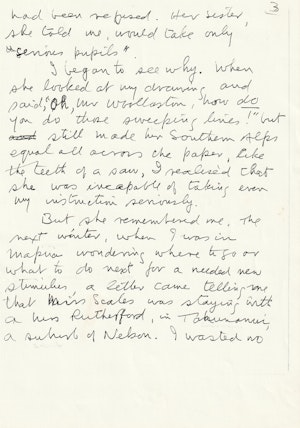 3
had been refused. Her sister,
she told me, would take only
"serious pupils"
I began to see why. When
she looked at my drawing and
said, "Oh, Mr Woollaston, how do
you do those sweeping lines!" but
still made her Southern Alps
equal all across the paper, like
the teeth of a saw, I realised that
she was incapable of taking even
my instruction seriously.
But she remembered me. The
next winter, when I was in
Mapua wondering where to go or
what to do next for a needed new
stimulus, a letter came telling me
that Miss Scales was staying with
a Mrs Rutherford, in Tahunanui,
a suburb of Nelson. I wasted no